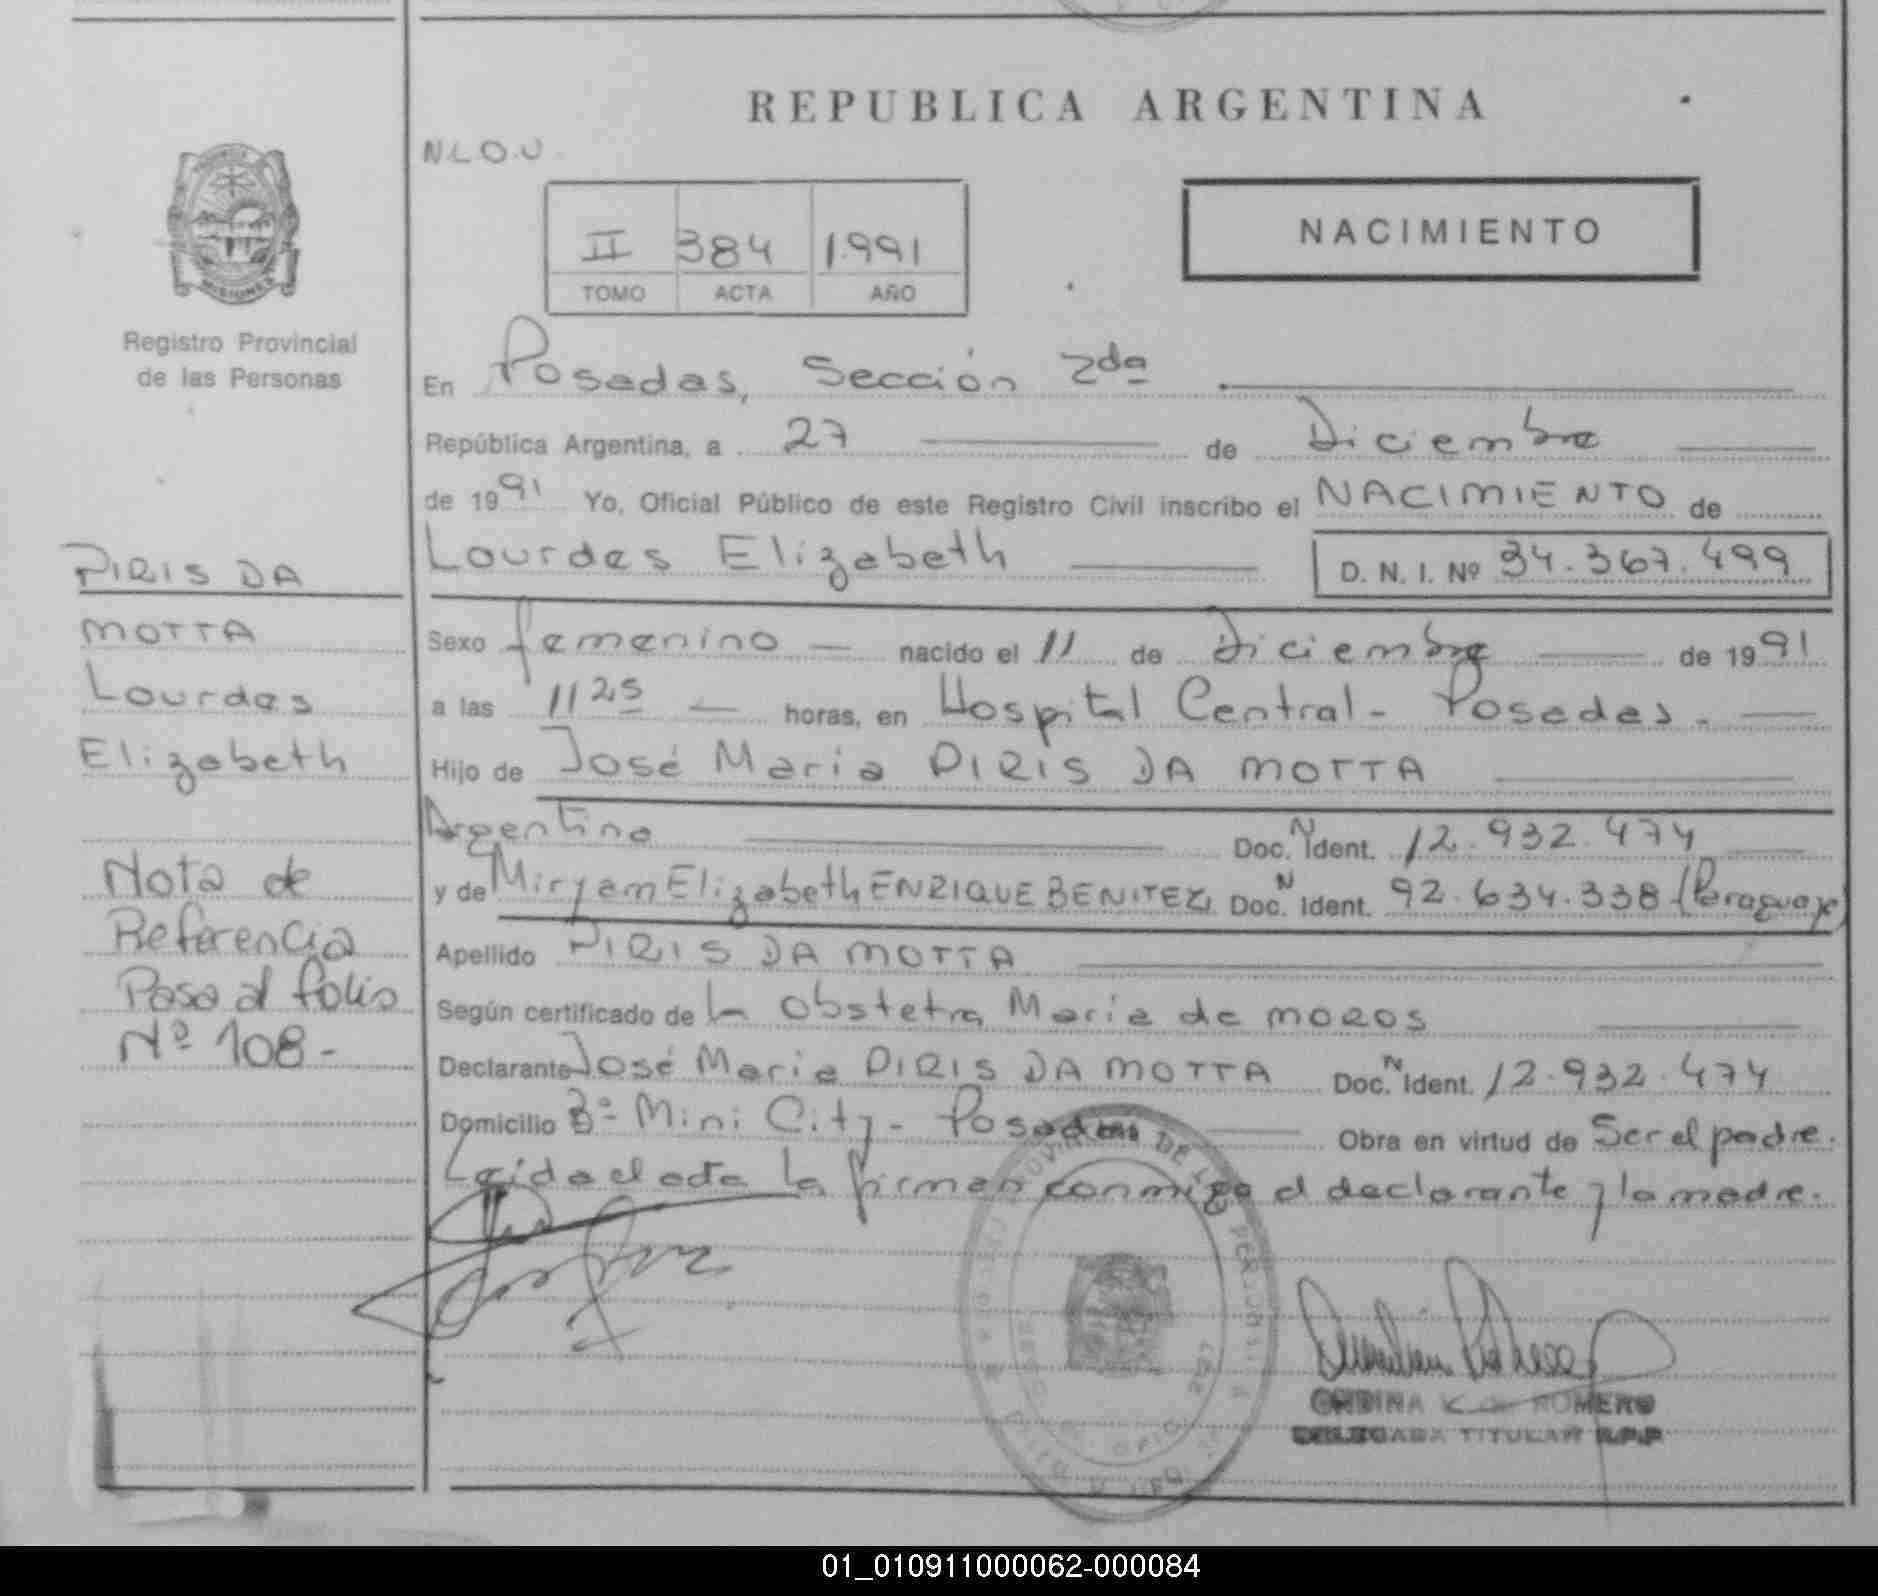 REPUBLICA ARGENTINA
N.L.O.U.
II 384 1.991
TOMO ACTA AÑO
NACIMIENTO
MISIONES
Registro Provincial
de las Personas
PIRIS DA
MOTTA
Lourdes
Elizabeth
Nota de
Referencia
Pasa al folio
Nº 108-
En Posadas, Sección 2da
República Argentina, a 27 de Diciembre
de 1991 Yo, Oficial Público de este Registro Civil inscribo el NACIMIENTO de
Lourdes Elizabeth D. N. I. Nº 34.367.499
Sexo femenino — nacido el 11 de Diciembre — de 1991
a las 11 25 — horas, en Hospital Central - Posadas. —
Hijo de José Maria PIRIS DA MOTTA
Argentino Doc. N Ident. 12.932.474
y de Miryam Elizabeth ENRIQUE BENITEZ Doc. N Ident. 92.634.338 (Paraguaya)
Apellido PIRIS DA MOTTA
Según certificado de la Obstetra Maria de MOROS
Declarante José Maria PIRIS DA MOTTA Doc. N Ident. 12.932.474
Domicilio Bº Mini City - Posadas Obra en virtud de Ser el padre.
Leida el acta la firman conmigo el declarante y la madre.
ONDINA ROMERO
DELEGADA TITULAR R.P.P
01_010911000062-000084